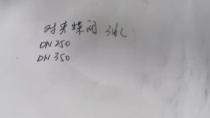 对夹蝶阀
DN 250
DN 350